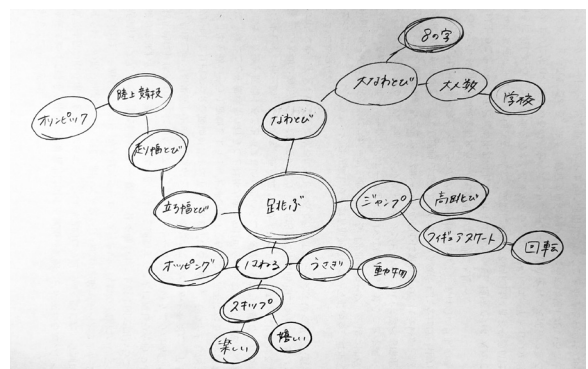 8の字
大なわとび
大人数
学校
陸上競技
オリンピック
なわとび
走り幅とび
立ち幅とび
跳ぶ
ジャンプ
高跳び
フィギュアスケート
回転
ホッピング
はねる
うさぎ
動物
スキップ
楽しい
嬉しい